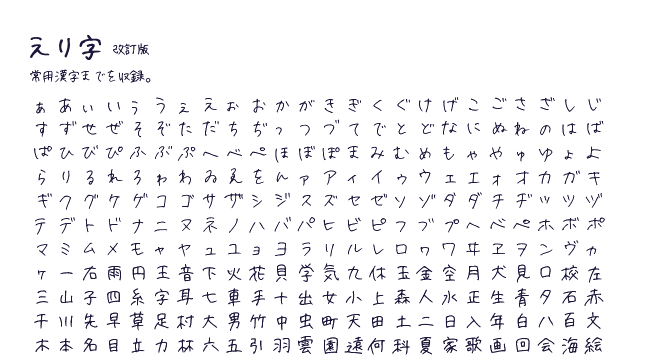 えり字 改訂版
常用漢字までを収録。
ぁ あ ぃ い ぅ う ぇ え ぉ お か が き ぎ く ぐ け げ こ ご さ ざ し じ
す ず せ ぜ そ ぞ た だ ち ぢ っ つ づ て で と ど な に ぬ ね の は ば
ぱ ひ び ぴ ふ ぶ ぷ へ べ ぺ ほ ぼ ぽ ま み む め も ゃ や ゅ ゆ ょ よ
ら り る れ ろ ゎ わ ゐ ゑ を ん ァ ア ィ イ ゥ ウ ェ エ ォ オ カ ガ キ
ギ ク グ ケ ゲ コ ゴ サ ザ シ ジ ス ズ セ ゼ ソ ゾ タ ダ チ ヂ ッ ツ ヅ
テ デ ト ド ナ ニ ヌ ネ ノ ハ バ パ ヒ ビ ピ フ ブ プ ヘ ベ ペ ホ ボ ポ
マ ミ ム メ モ ャ ヤ ュ ユ ョ ヨ ラ リ ル レ ロ ヮ ワ ヰ ヱ ヲ ン ヴ ヵ
ヶ 一 右 雨 円 王 音 下 火 花 貝 学 気 九 休 玉 金 空 月 犬 見 口 校 左
三 山 子 四 糸 字 耳 七 車 手 十 出 女 小 上 森 人 水 正 生 青 夕 石 赤
千 川 先 早 草 足 村 大 男 竹 中 虫 町 天 田 土 二 日 入 年 白 八 百 文
木 本 名 目 立 力 林 六 五 引 羽 雲 園 遠 何 科 夏 家 歌 画 回 会 海 絵